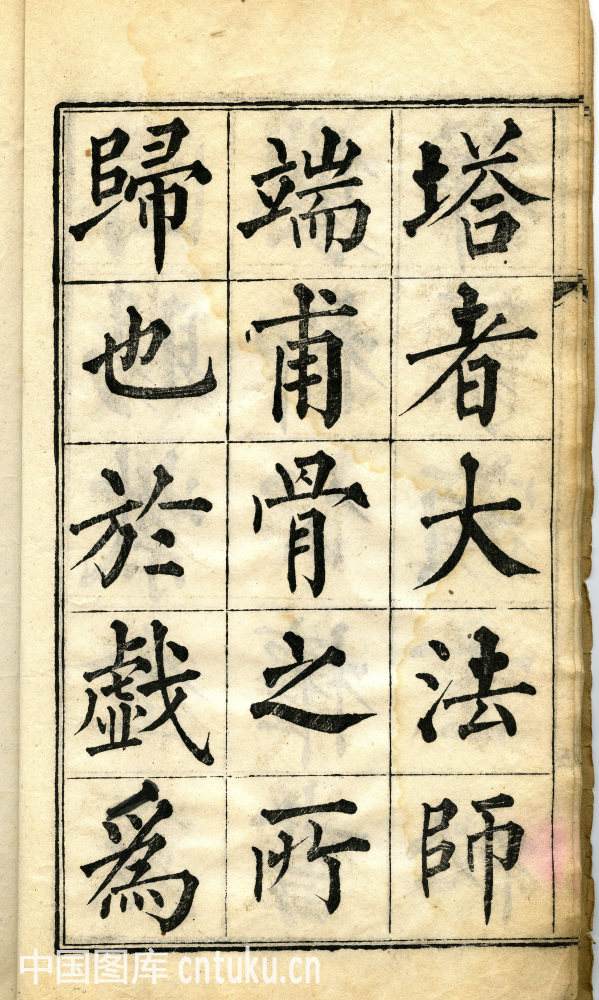 塔者大法師
端甫骨之所
歸也於戲為
中国图库 cntuku.cn